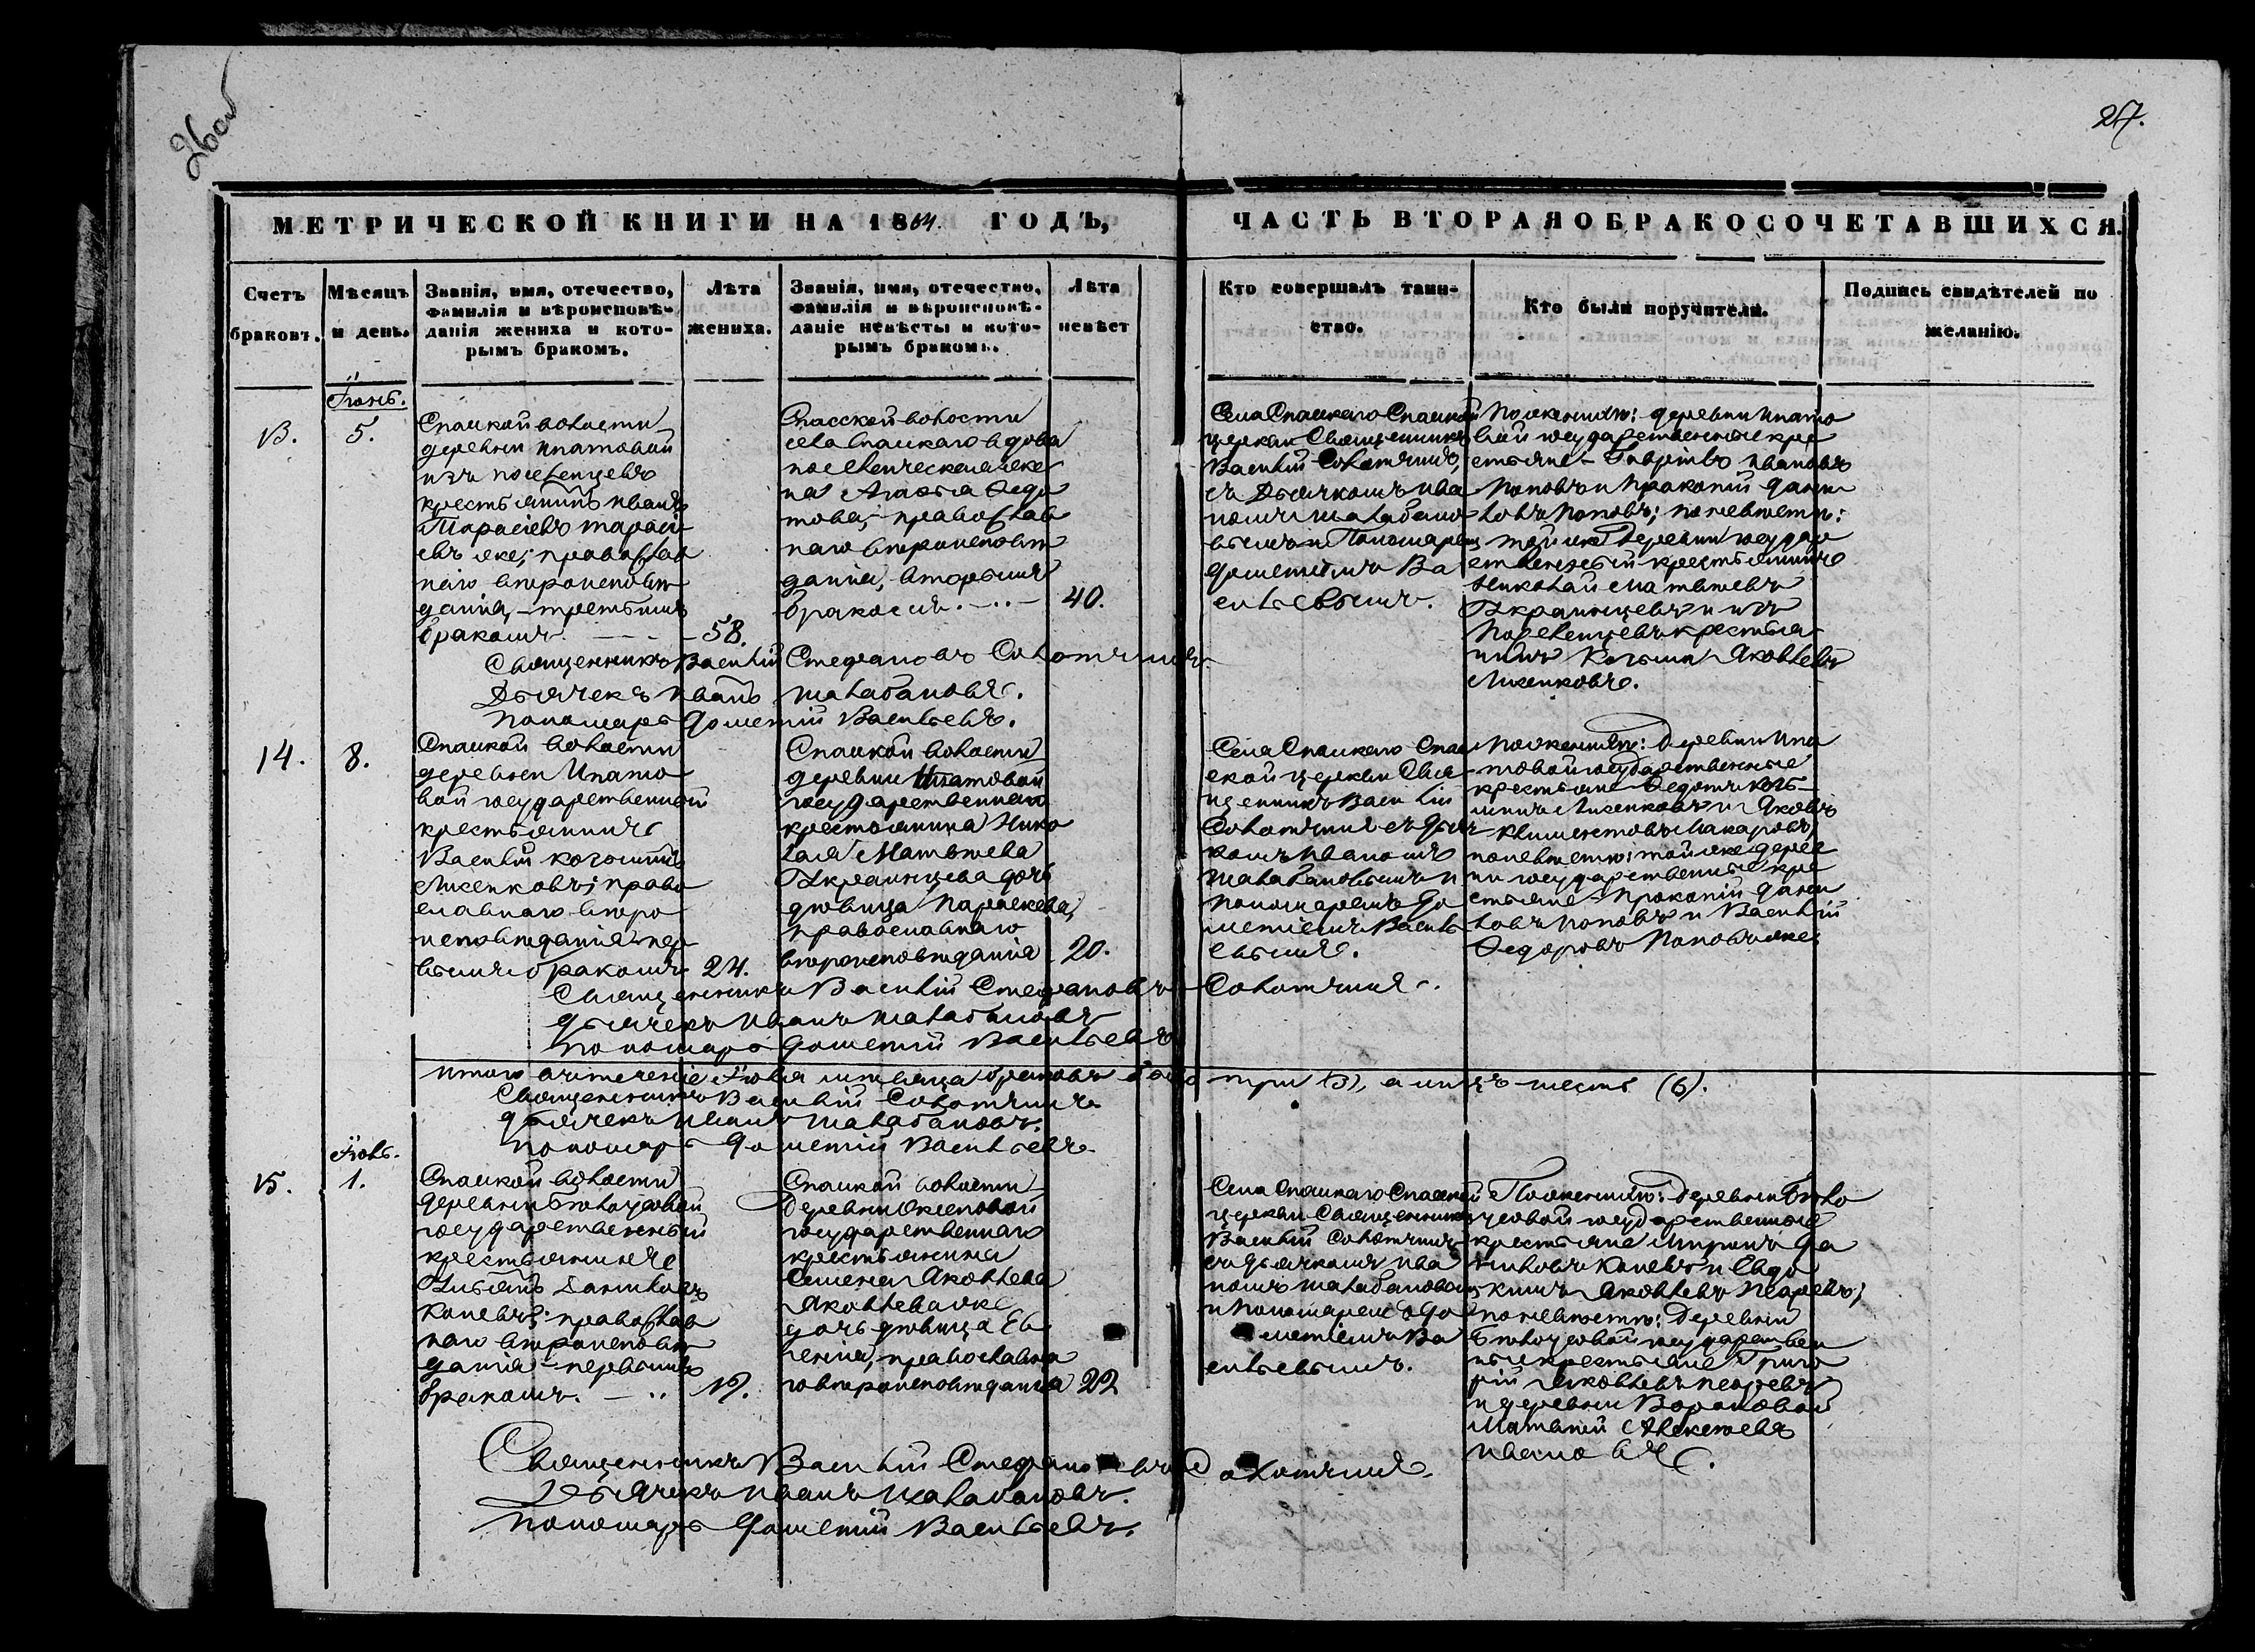 26 об
27.
МЕТРИЧЕСКОЙ КНИГИ НА 1864. ГОДЪ,
ЧАСТЬ ВТОРАЯ О БРАКОСОЧЕТАВШИХСЯ.
Счетъ браковъ.
Мѣсяцъ и день.
Званія, имя, отечество,
фамилія и вѣроисповѣ-
данія жениха и кото-
рымъ бракомъ.
Лѣта
жениха.
Званія, имя, отечество,
фамилія и вѣроисповѣ-
даніе невѣсты и кото-
рымъ бракомъ.
Лѣта
невѣст
Кто совершалъ таин-
ство.
Кто были поручители.
Подпись свидѣтелей по
желанію.
Іюнь.
13.
5.
Спаской волости
деревни Ипатовой
изъ поселенцевъ
крестьянинъ Иванъ
Тарасіевъ Тарасі
евъ же; православ
наго вѣроисповѣ
данія, третьимъ
бракомъ.
58.
Спасской волости
села Спаскаго вдова
поселенческая же
на Агафья Федо
това, православ
наго вѣроисповѣ
данія, вторымъ
бракомъ.
40.
Села Спаскаго Спаской
церкви Священникъ
Василій Солотчинъ,
съ Дьячкомъ Ива
номъ Шалабано
вымъ и Пономаремъ
Дометіемъ Ва
сильевымъ.
По женихѣ: деревни Ипато
вой государственные кре
стьяне Гавріилъ Ивановъ
Поповъ и Прокопій Дани
ловъ Поповъ; по невѣстѣ:
той же Деревни государ
ственный крестьянинъ
Николай Матвѣевъ
Украинцевъ и изъ
Поселенцевъ крестья
нинъ Козьма Яковлевъ
Лисенковъ.
Священникъ Василій Стефановъ Солотчинъ
Дьячекъ Иванъ Шалабановъ.
Пономарь Дометій Васильевъ.
14.
8.
Спаской волости
деревни Ипато
вой государственный
крестьянинъ
Василій Козьминъ
Лисенковъ; право
славнаго вѣро
исповѣданія, пер
вымъ бракомъ
24.
Спаской волости
деревни Ипатовой
государственнаго
крестьянина Нико
лая Матвѣева
Украинцева дочь
дѣвица Параскева,
православнаго
вѣроисповѣданія
20.
Села Спаскаго Спас
ской церкви Свя
щенникъ Василій
Солотчинъ съ Дьяч
комъ Иваномъ
Шалабановымъ и
пономаремъ До
метіемъ Василь
евымъ.
По женихѣ: Деревни Ипа
товой государственные
крестьяне Федотъ Козь
минъ Лисенковъ и Яковъ
Климентовъ Макаровъ,
по невѣстѣ: той же дерев
ни государственные кре
стьяне Прокопій Дани
ловъ Поповъ и Василій
Федоровъ Поповъ же
Священникъ Василій Стефановъ Солотчинъ.
Дьячекъ Иванъ Шалабановъ
Пономарь Дометій Васильевъ
Итого въ теченіе Іюня мѣсяца браковъ было три (3), а лицъ шесть (6).
Священникъ Василій Солотчинъ
Дьячекъ Иванъ Шалабановъ.
Пономарь Дометій Васильевъ
Іюль.
15.
1.
Спаской волости
деревни Бѣлоусовой
государственный
крестьянинъ
Ульянъ Даниловъ
Коневъ; православ
наго вѣроисповѣ
данія первымъ
бракомъ.
19.
Спаской волости
Деревни
государственнаго
крестьянина
Семена Яковлева
Яковлева же
дочь дѣвица Ев
генія, православна
го вѣроисповѣданія
22
Села Спаскаго Спаской
церкви Священникъ
Василій Солотчинъ
съ Дьячкомъ Ива
номъ Шалабановымъ
и Пономаремъ До
метіемъ Ва
сильевымъ.
По женихѣ: деревни Бѣло
усовой государственные
крестьяне Миронъ Да
ниловъ Коневъ и Евдо
кимъ Яковлевъ
по невѣстѣ: Деревни
Бѣлоусовой государствен
ные крестьяне Григо
рій Яковлевъ
и деревни Вороновой
Матвѣй Алексѣевъ
Ивановъ.
Священникъ Василій Стефановъ Солотчинъ.
Дьячекъ Иванъ Шалабановъ.
Пономарь Дометій Васильевъ.